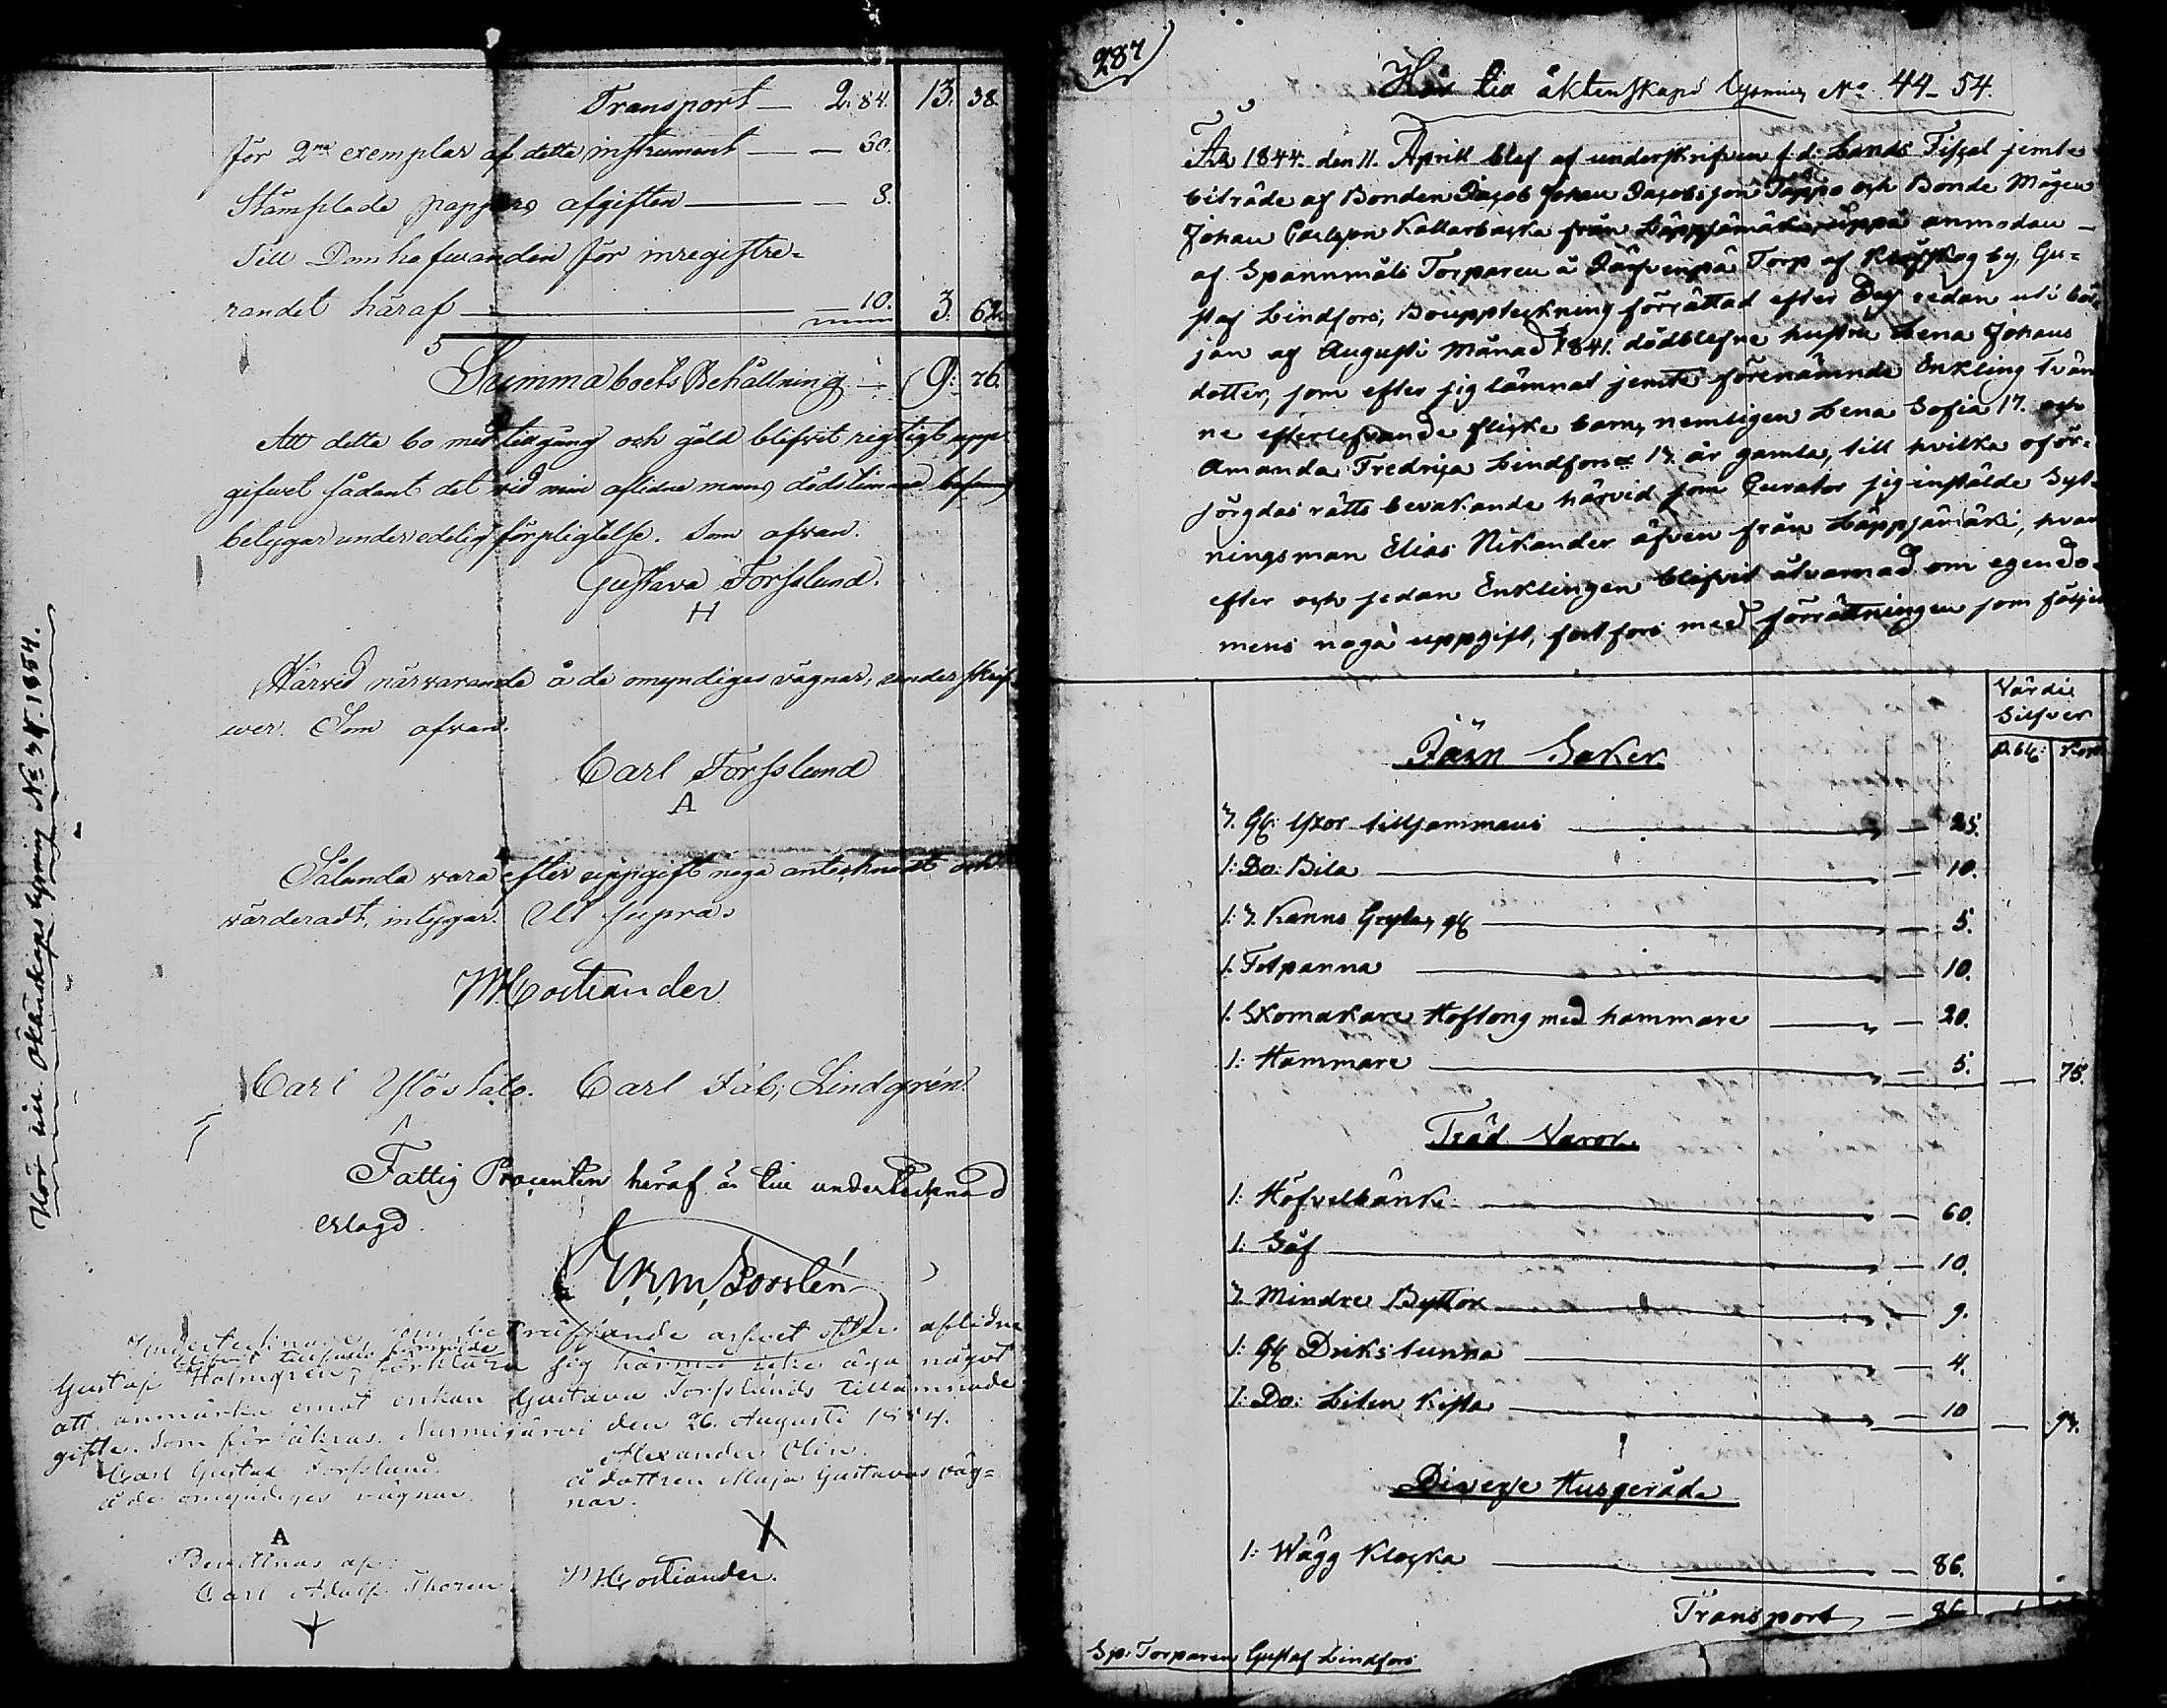 Transport — 2. 84. 13. 38.
för 2ne exemplar af detta instrument — — 60.
Stämplade pappers afgiften — — 8.
Till Domhafwanden för inregistre=
randet häraf — — 10. 3. 62.
Summa boets Behållning — 9: 76.
Att detta bo med tillgång och gäld blifvit rigtigt upp-
gifwet sådant det wid min aflidne mans dödstimma befanns
betygar under edelig förpligtelse. Som ofvan.
Gustava Forsslund.
H
Härvid närvarande å de omyndiges vägnar, underskrif-
wer. Som ofvan.
Carl Forsslund
A
Sålunda vara efter uppgift noga antecknadt och
värderadt, intygar. Ut supra.
M Costiander
Carl Ylöstalo. Carl Fab; Lindgrén
Fattig Procenten häraf är till undertecknad
erlagd.
Undertecknare, som beträffande arfvet efter aflidne
blifvit tillfulle förnöjde
Gustaf Holmgren, förklara sig härmed icke äga något
att anmärka emot enkan Gustava Forsslunds tillämnade
gifte. Som försäkras. Nurmijärvi den 26. Augusti 1854.
Carl Gustaf Forsslund. Alexander Olin.
å de omyndiges vägnar. å dottren Maja Gustavas väg=
nar.
A
Bevittnas af:
Carl Adolf Thoren. M Costiander.
Hör till Äktenskaps lysning No 34. 1854.
287
Hör till äktenskaps lysning No 44 – 54.
År 1844. den 11. April blef af underskrifven f.d. Lands Fiscal jemte
biträde af Bonden Jacob Johan Jacobsson Tappo och Bonde Mågen
Johan Carlsson Kallarbacka från Läppjämäki, uppå anmodan
af Spannmåls Torparen å Järfvenpä Torp af by, Gu=
staf Lindfors, Bouppteckning förrättad efter Dess sedan uti bör-
jan af Augusti Månad 1841. dödblefne hustru Lena Johans
dotter, som efter sig lämnat jemte förenämnde Enkling Tvän
ne efterlefvande flicke barn, nemligen Lena Sofia 17. och
Amanda Fredrica Lindfors 13. år gamla, till hvilka oför=
sörgdas rätts bevakande härvid som Curator sig instälde Syt-
ningsman Elias Nikander äfven från Läppjämäki, hvar
efter och sedan Enklingen blifvit åtvarnad om egendo-
mens noga uppgift, fortfors med förrättningen som följer
Värde
Silfver
Rbl: Kop
Järn Saker
2. Gl: Yxor tillsammans — — 25.
1: Do: Bila — — 10.
1: 2. Kanns Gryta, gl — — 5.
1. Fotpanna — — 10.
1. Skomakare Hoftong med hammare — — 20.
1: Hammare — — 5. — 75.
Träd Varor
1: Höfvelbänk — — 60.
1: Såf — — 10.
2. Mindre Byttor — — 9.
1: Gl Drikstunna — — 4.
1: Do: Liten Kista — — 10 — 93.
Diverse Husgeråd
1: Wägg Klocka — — 86.
Transport, — 86
Sp: Torparen Gustaf Lindfors